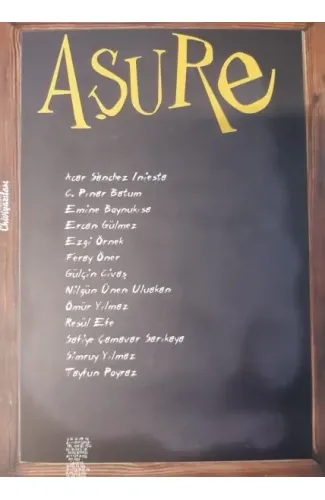 AŞURe
Acar Sanchez Iniesta
C. Pınar Batum
Emine Baynukısa
Ercan Gülmez
Ezgi Örnek
Feray Öner
Gülçin Civaş
Nilgün Ünen Uluakan
Ömür Yılmaz
Resül Efe
Safiye Çamavar Sarıkaya
Simruy Yılmaz
Taytun Poyraz
Çiviyazıları